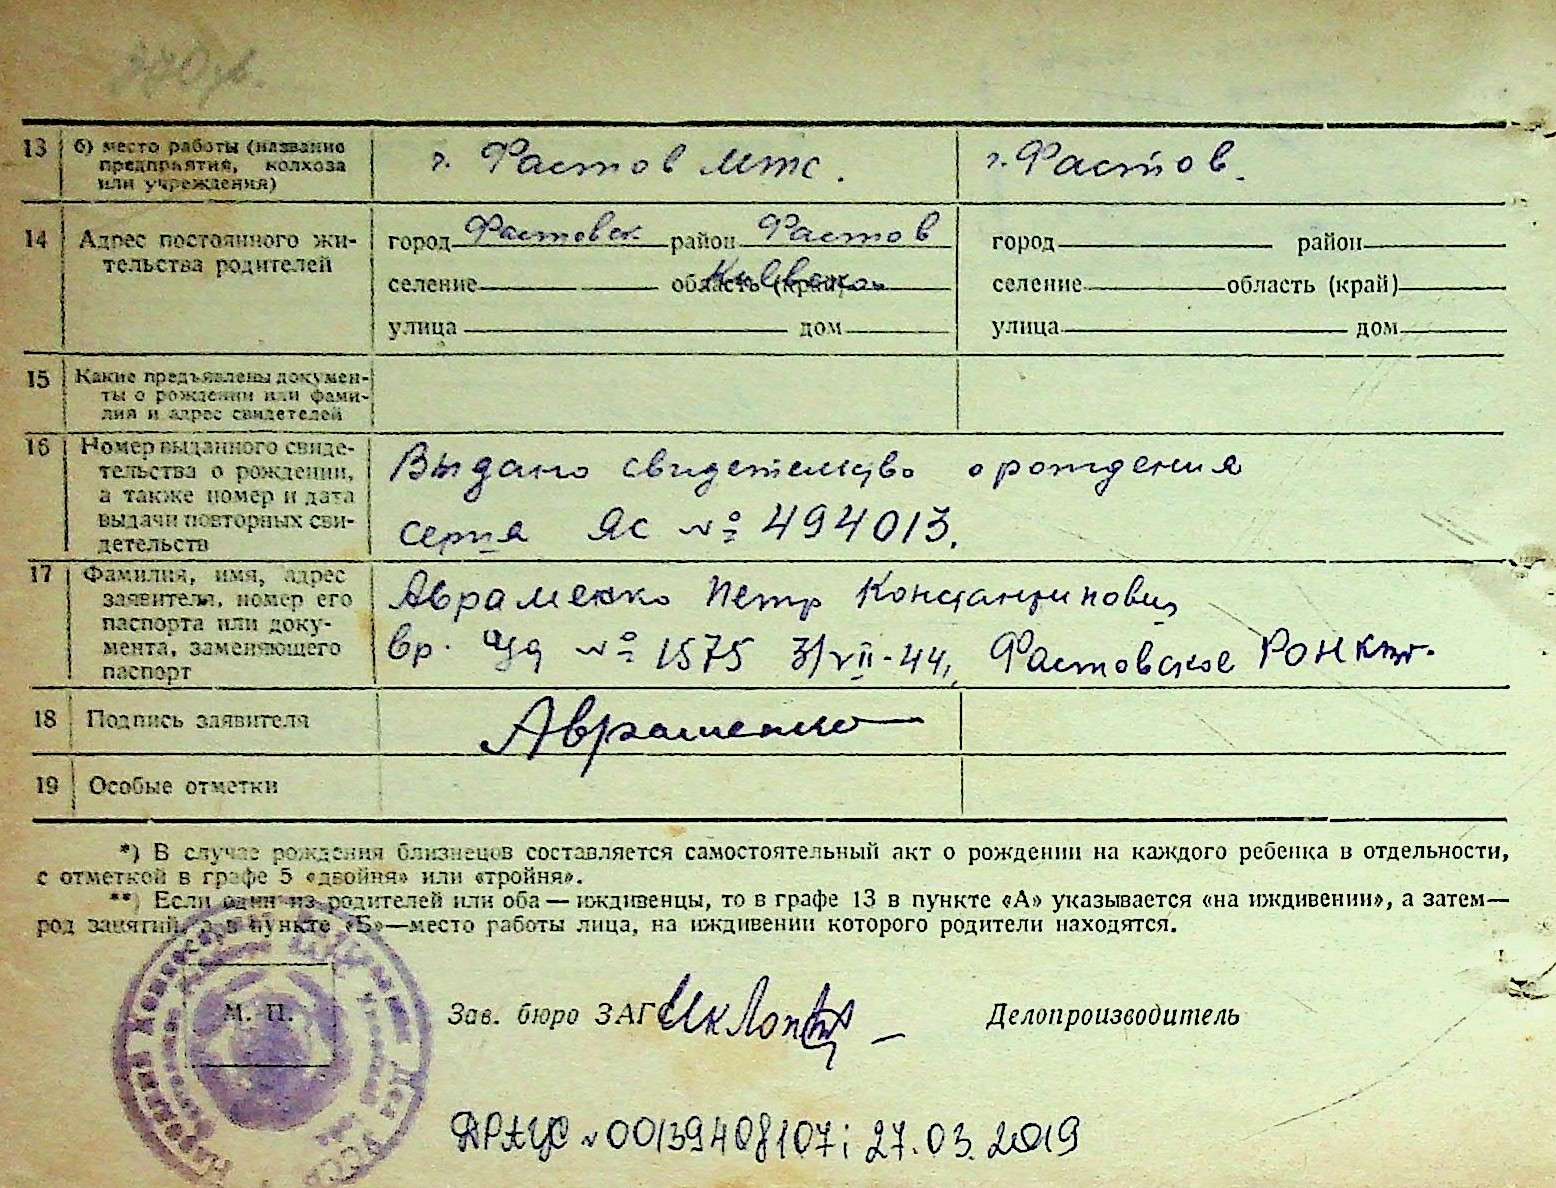 13 б) место работы (название
предприятия, колхоза
или учреждения)
г. Фастов мтс.
г. Фастов.
14 Адрес постоянного жи-
тельства родителей
город Фастовск. район Фастов
селение область (край) Киевской
улица дом
город район
селение область (край)
улица дом
15 Какие предъявлены докумен-
ты о рождении или фами-
лия и адрес свидетелей
16 Номер выданного свиде-
тельства о рождении,
а также номер и дата
выдачи повторных сви-
детельств
Выдано свидетельство о рождения
серия ЯС № 494013.
17 Фамилия, имя, адрес
заявителя, номер его
паспорта или доку-
мента, заменяющего
паспорт
Авраменко Петр Константинович
вр. уд № 1575 3/VII-44, Фастовское РО НК
18 Подпись заявителя
Авраменко
19 Особые отметки
*) В случае рождения близнецов составляется самостоятельный акт о рождении на каждого ребенка в отдельности,
с отметкой в графе 5 «двойня» или «тройня».
**) Если один из родителей или оба — иждивенцы, то в графе 13 в пункте «А» указывается «на иждивении», а затем—
род занятий, а в пункте «Б»—место работы лица, на иждивении которого родители находятся.
М. П.
Зав. бюро ЗАГС
Делопроизводитель
ДРАЦС № 00139408107; 27.03.2019